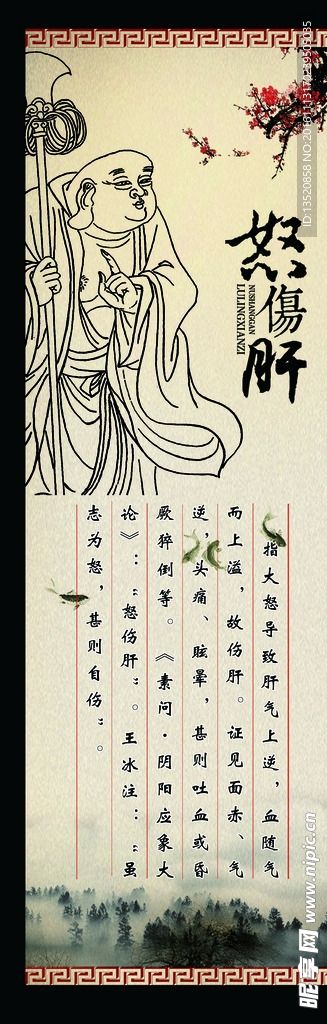 怒傷肝
NUSHANGGAN
LULINGXIANZI
指大怒导致肝气上逆，血随气
而上溢，故伤肝。证见面赤、气
逆，头痛、眩晕，甚则吐血或昏
厥猝倒等。《素问·阴阳应象大
论》：“怒伤肝”。王冰注：“虽
志为怒，甚则自伤”。
昵享网 www.nipic.cn